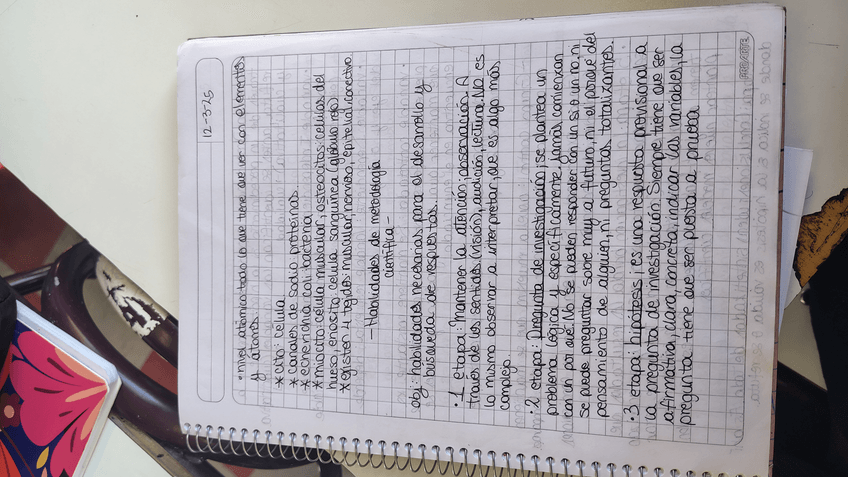 12-3-25
• nivel atómico: todo lo que tiene que ver con elementos
y átomos.
* cito: célula
* canales de sodio proteínas
* echerichia coli: bacteria
* miocito: célula muscular, astreocitos: celulas del
hueso, enocito celula sanguinea (globulo rojo)
* existen 4 tejidos: muscular, nervioso, epitelial, conectivo.
- Habilidades de metodología
científica -
obj: habilidades necesarias para el desarrollo y
busqueda de respuestas.
• 1 etapa: mantener la atención; observación. A
traves de los sentidos (visión), audición, lectura. No es
lo mismo observar a interpretar, que es algo más
complejo.
• 2 etapa: Pregunta de investigación; se plantea un
problema lógica y específicamente. Jamás comienzan
con un por qué. No se pueden responder con un si o un no, ni
se puede preguntar sobre muy a futuro, ni el porque del
pensamiento de alguien, ni preguntas totalizantes.
• 3 etapa: hipótesis; es una respuesta provisional a
la pregunta de investigación. Siempre tiene que ser
afirmativa, clara, concreta, indicar las variables, la
pregunta tiene que ser puesta a prueba